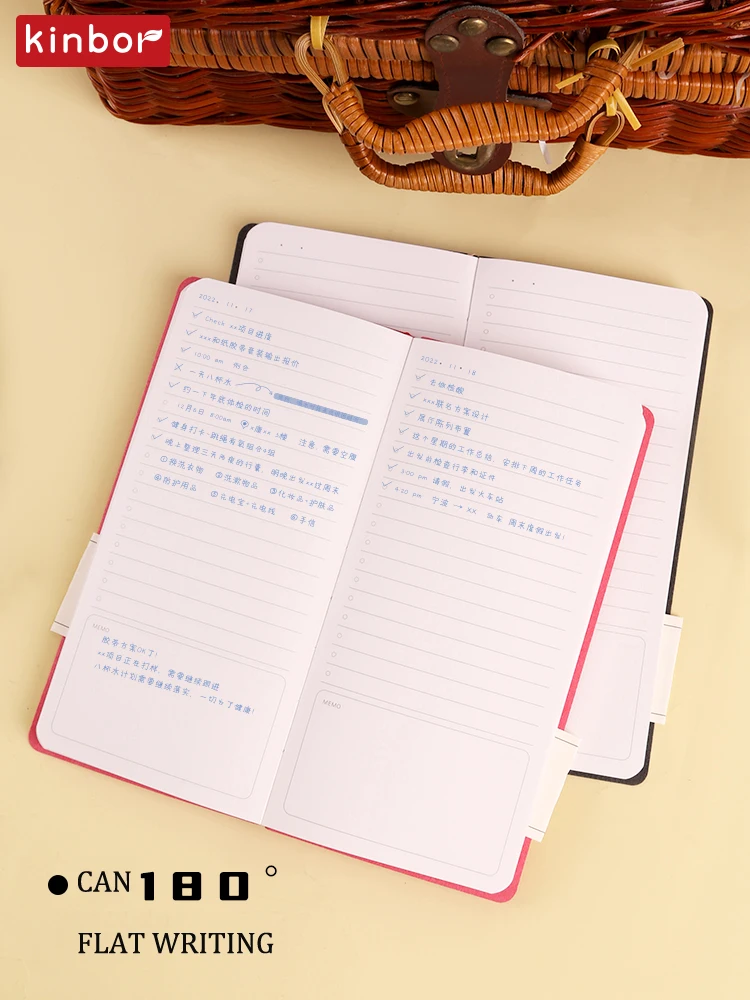 kinbor
2022. 11. 17
Check xx项目进度
xxx和纸胶带套装输出报价
10:00 am 例会
一天八杯水
约一下年底体检的时间
12月6日 8:00am
健身打卡-跳绳有氧组合4组
晚上整理三天两夜的行囊, 明晚出发xx过周末
①换洗衣物 ②洗漱物品 ③化妆品+护肤品
④防护用品 ⑤充电宝+充电线 ⑥手信
MEMO
胶带方案OK了!
xx项目正在打样, 需要继续跟进
八杯水计划需要继续落实, 一切为了健康!
2022. 11. 18
去做核酸
xxx联名方案设计
展厅陈列布置
这个星期的工作总结, 安排下周的工作任务
出发前检查行李和证件
3:00 pm 请假, 出发火车站
4:20 pm 宁波 → XX 动车 周末度假出发!
MEMO
CAN 180°
FLAT WRITING